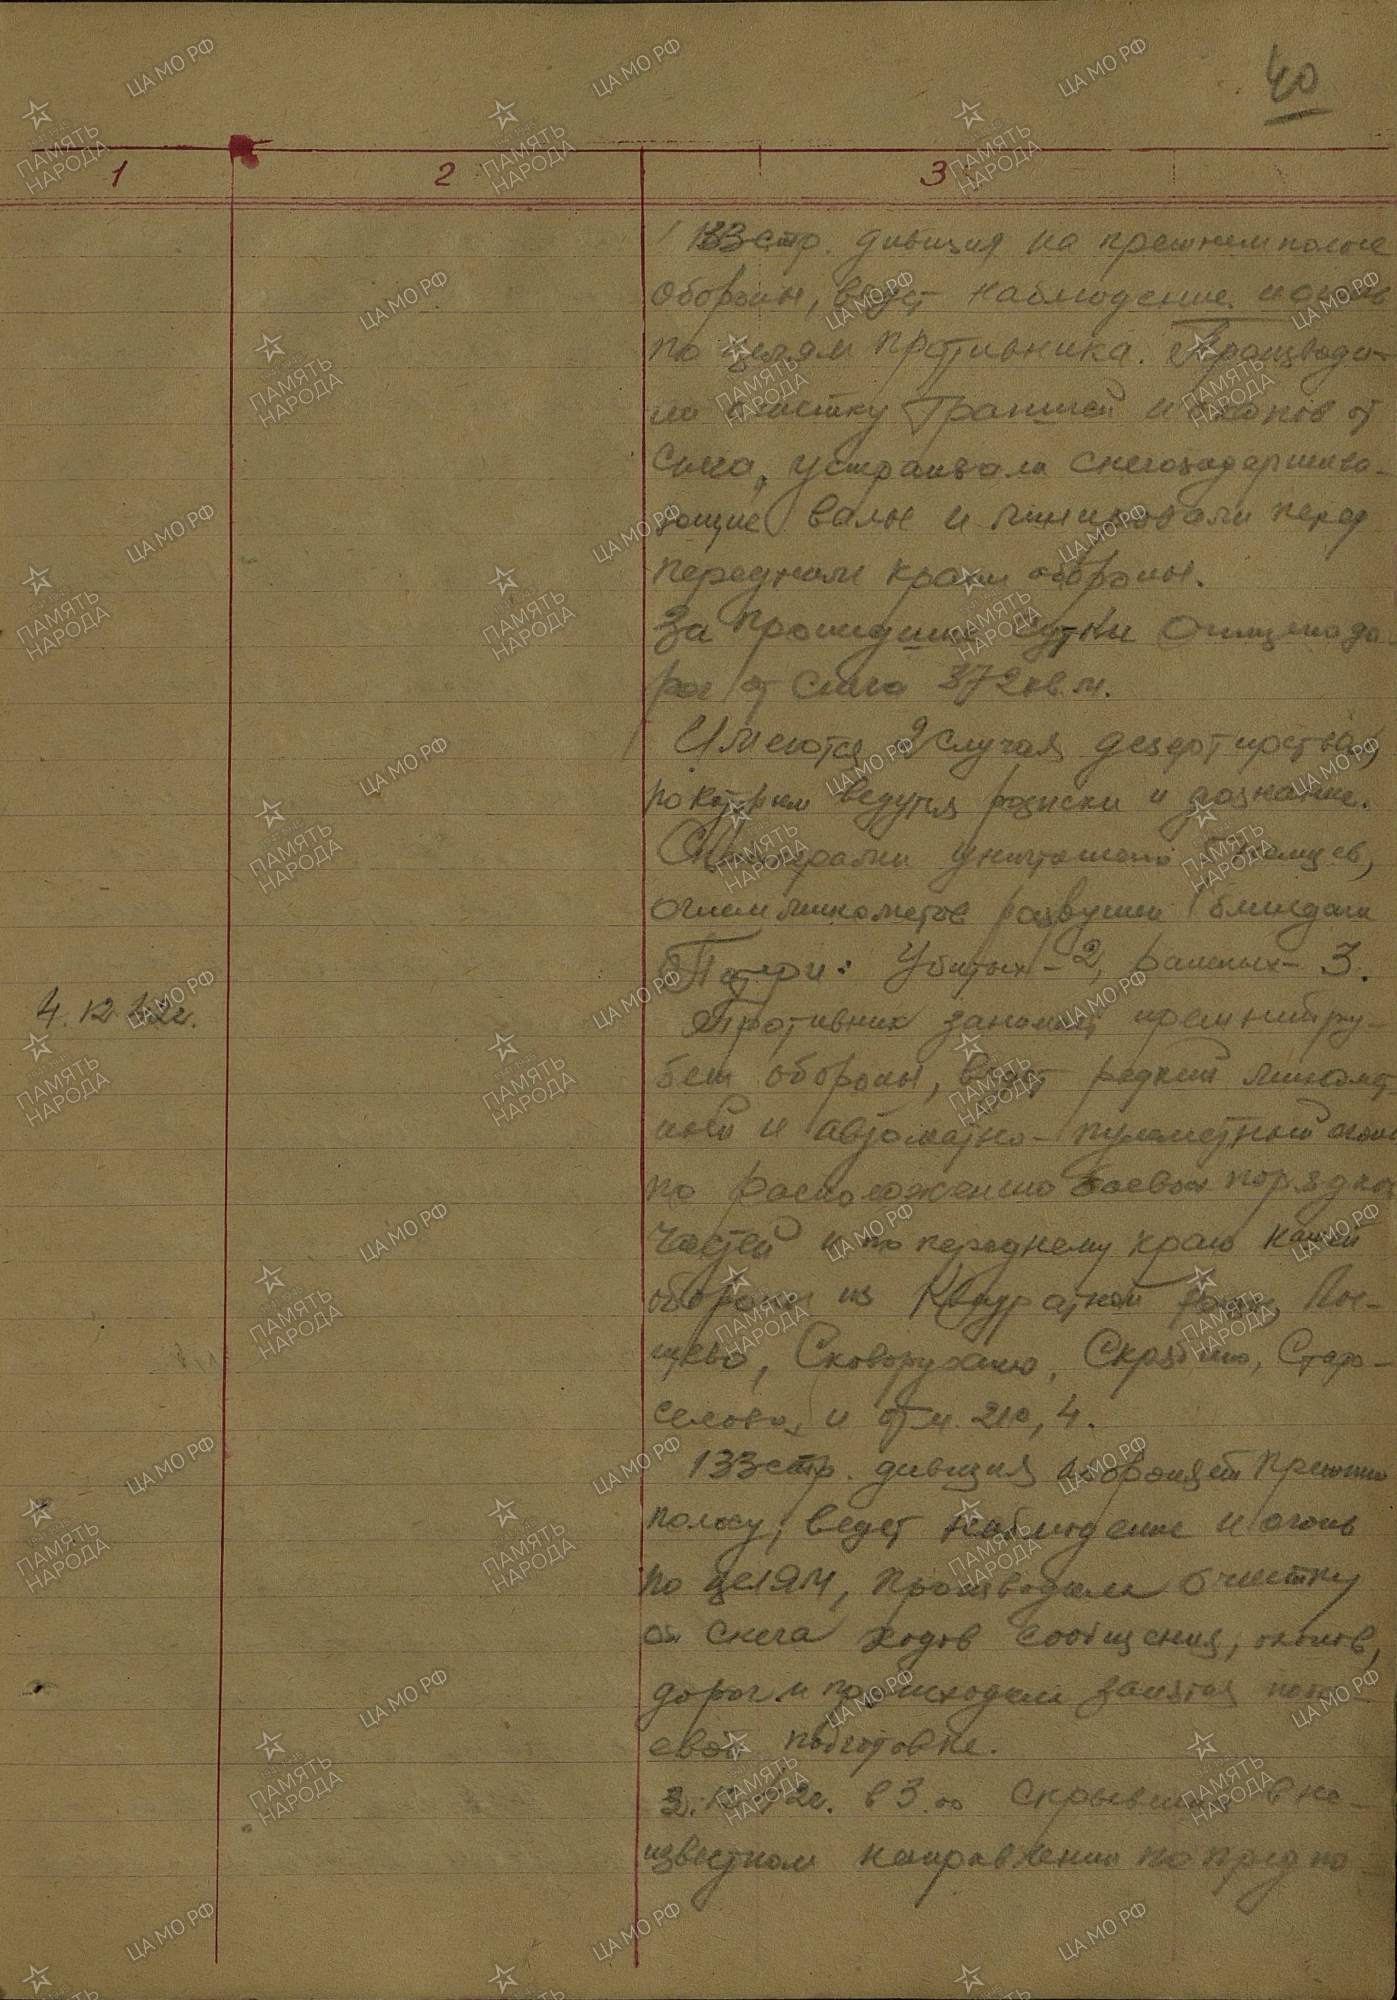 40
1 2 3
133 стр. дивизия на прежней полосе
обороны, ведет наблюдение и огонь
по целям противника. Производи-
ла очистку траншей и окопов от
снега, устраивала снегозадержива-
ющие валы и минировали перед
передним краем обороны.
За прошедшие сутки очищено до-
рог от снега 372 кв.м.
Имеются 2 случая дезертирства,
по которым ведутся розыски и дознание.
Снайперами уничтожено немцев,
огнем минометов разрушен 1 блиндаж
Потери: Убитых - 2, раненых - 3.
4.12.42г. Противник занимает прежний ру-
беж обороны, ведет редкий миномет
ный и автоматно-пулеметный огонь
по расположению боевых порядков
частей и по переднему краю нашей
обороны из Квадратной рощи,
Сковорухино, Скрябино, Старо-
селово, и отм. 210,4.
133 стр. дивизия обороняет прежнюю
полосу, ведет наблюдение и огонь
по целям, производили очистку
от снега ходов сообщения, окопов,
дорог и проходили занятия по бо-
евой подготовке.
3.12.42г. в 3.00 скрылись в не-
известном направлении по предпо-